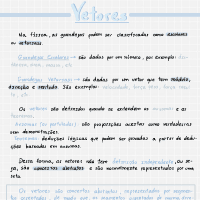 Vetores
Na física, as grandezas podem ser classificadas como escalares
ou vetoriais.
Grandezas Escalares → são dados por um número, por exemplo:
Grandezas Vetoriais → são dados por um vetor que tem módulo,
direção e sentido. São exemplos: velocidade, força
Os vetores são definidos quando se entendem os axiomas e os
teoremas.
Axiomas (ou postulados) são proposições aceitas como verdadeiras
sem demonstrações.
Teoremas: deduções lógicas que podem ser provadas a partir de dedu-
ções baseadas em axiomas.
Dessa forma, os vetores não tem definição independente, ou se-
ja, são conceitos abstratos e são normalmente representados por uma
seta.
Os vetores são conceitos abstratos, representados por segmen-
tos orientados, de modo que os segmentos orientados de mesmo